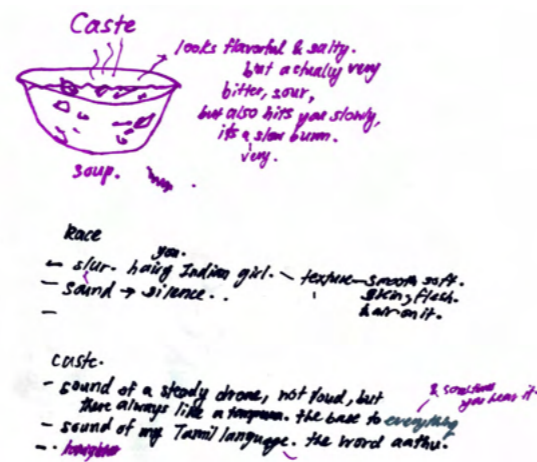 Caste
looks flavorful & salty.
but actually very
bitter, sour,
but also hits you slowly,
it's a slow burn.
very.
soup.
Race
you.
- slur. hairy Indian girl. - texture - smooth soft.
skin, flesh.
hair on it.
- sound → silence..
-
caste.
- sound of a steady drone, not loud, but
there always like a tanpura. the base to everything
& sometimes
you hear it.
- sound of my Tamil language. the word aathu.
-